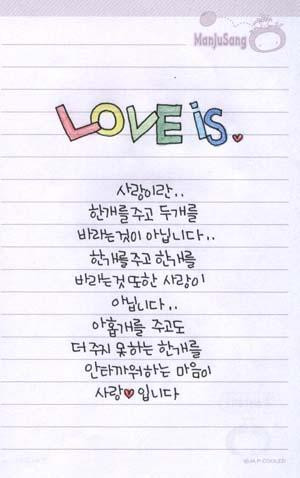 ManjuSang
LOVE is.
사랑이란..
한개를 주고 두개를
바라는것이 아닙니다..
한개를 주고 한개를
바라는것 또한 사랑이
아닙니다..
아홉개를 주고도
더 주지 못하는 한개를
안타까워하는 마음이
사랑♥입니다